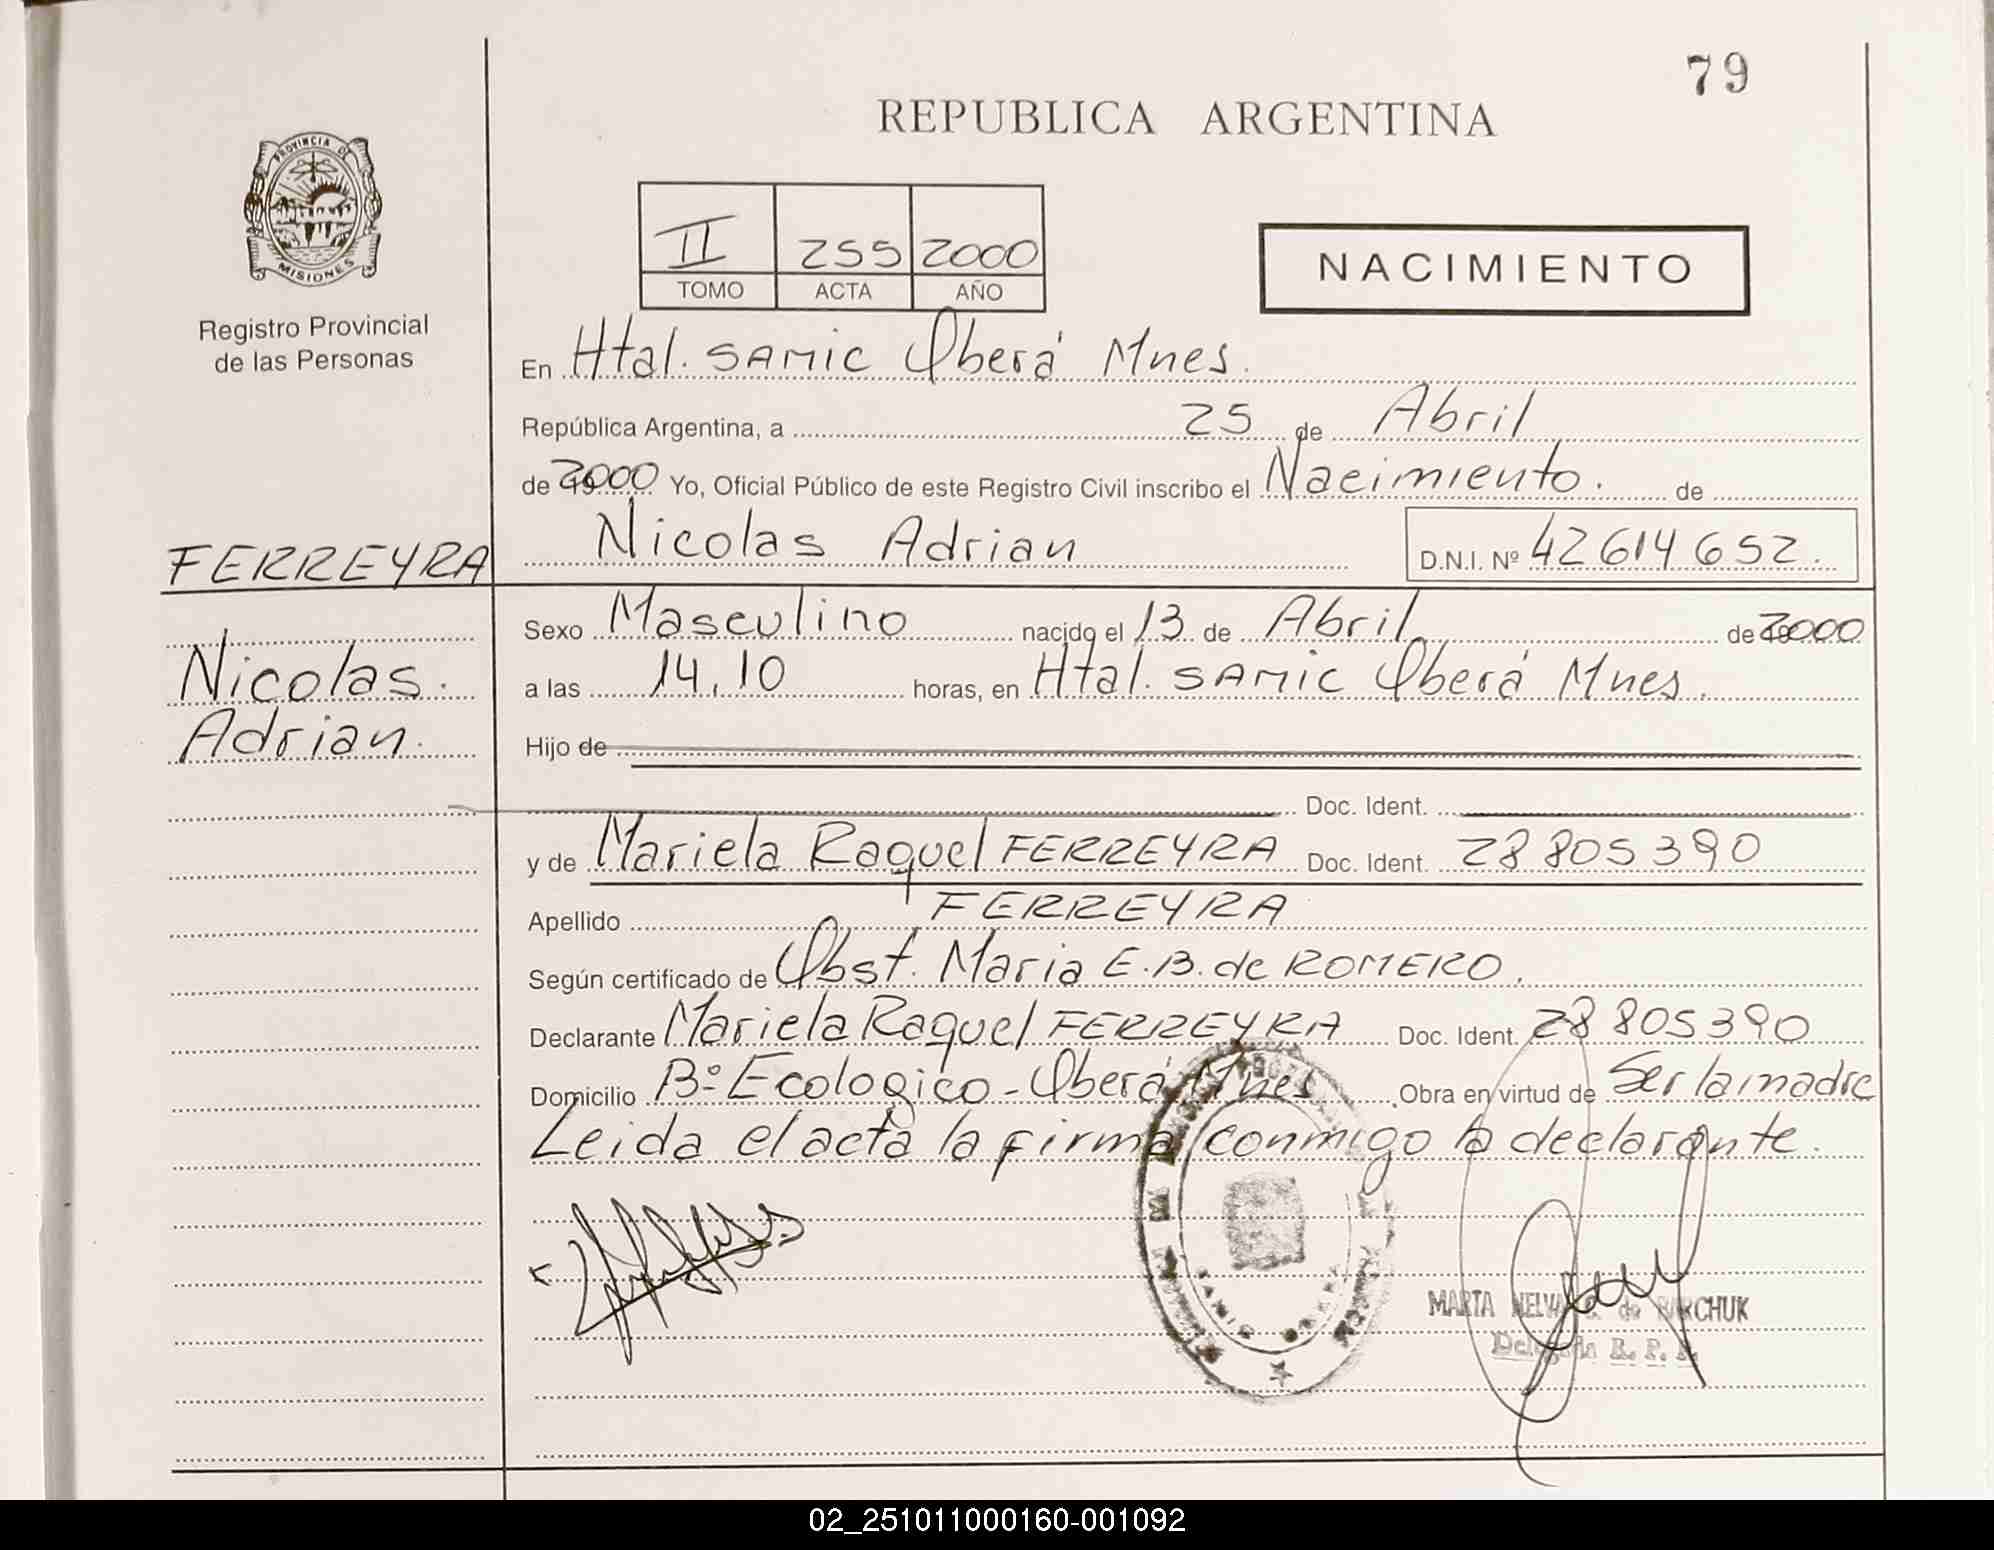 79
REPUBLICA ARGENTINA
PROVINCIA DE
MISIONES
Registro Provincial
de las Personas
II 255 2000
TOMO ACTA AÑO
NACIMIENTO
En Htal. SAMIC Oberá Mnes.
República Argentina, a 25 de Abril
de 2000 Yo, Oficial Público de este Registro Civil inscribo el Nacimiento. de
FERREYRA
Nicolas Adrian D.N.I. Nº 42614652.
Sexo Masculino nacido el 13 de Abril de 2000
Nicolas.
Adrian.
a las 14,10 horas, en Htal. SAMIC Oberá Mnes.
Hijo de
Doc. Ident.
y de Mariela Raquel FERREYRA Doc. Ident. 28805390
Apellido FERREYRA
Según certificado de Obst. Maria E.B. de ROMERO.
Declarante Mariela Raquel FERREYRA Doc. Ident. 28805390
Domicilio Bº Ecologico - Oberá Mnes Obra en virtud de Ser la madre
Leida el acta la firma conmigo la declarante.
MARTA NELVA de BARCHUK
Delegada R. P. P.
02_251011000160-001092